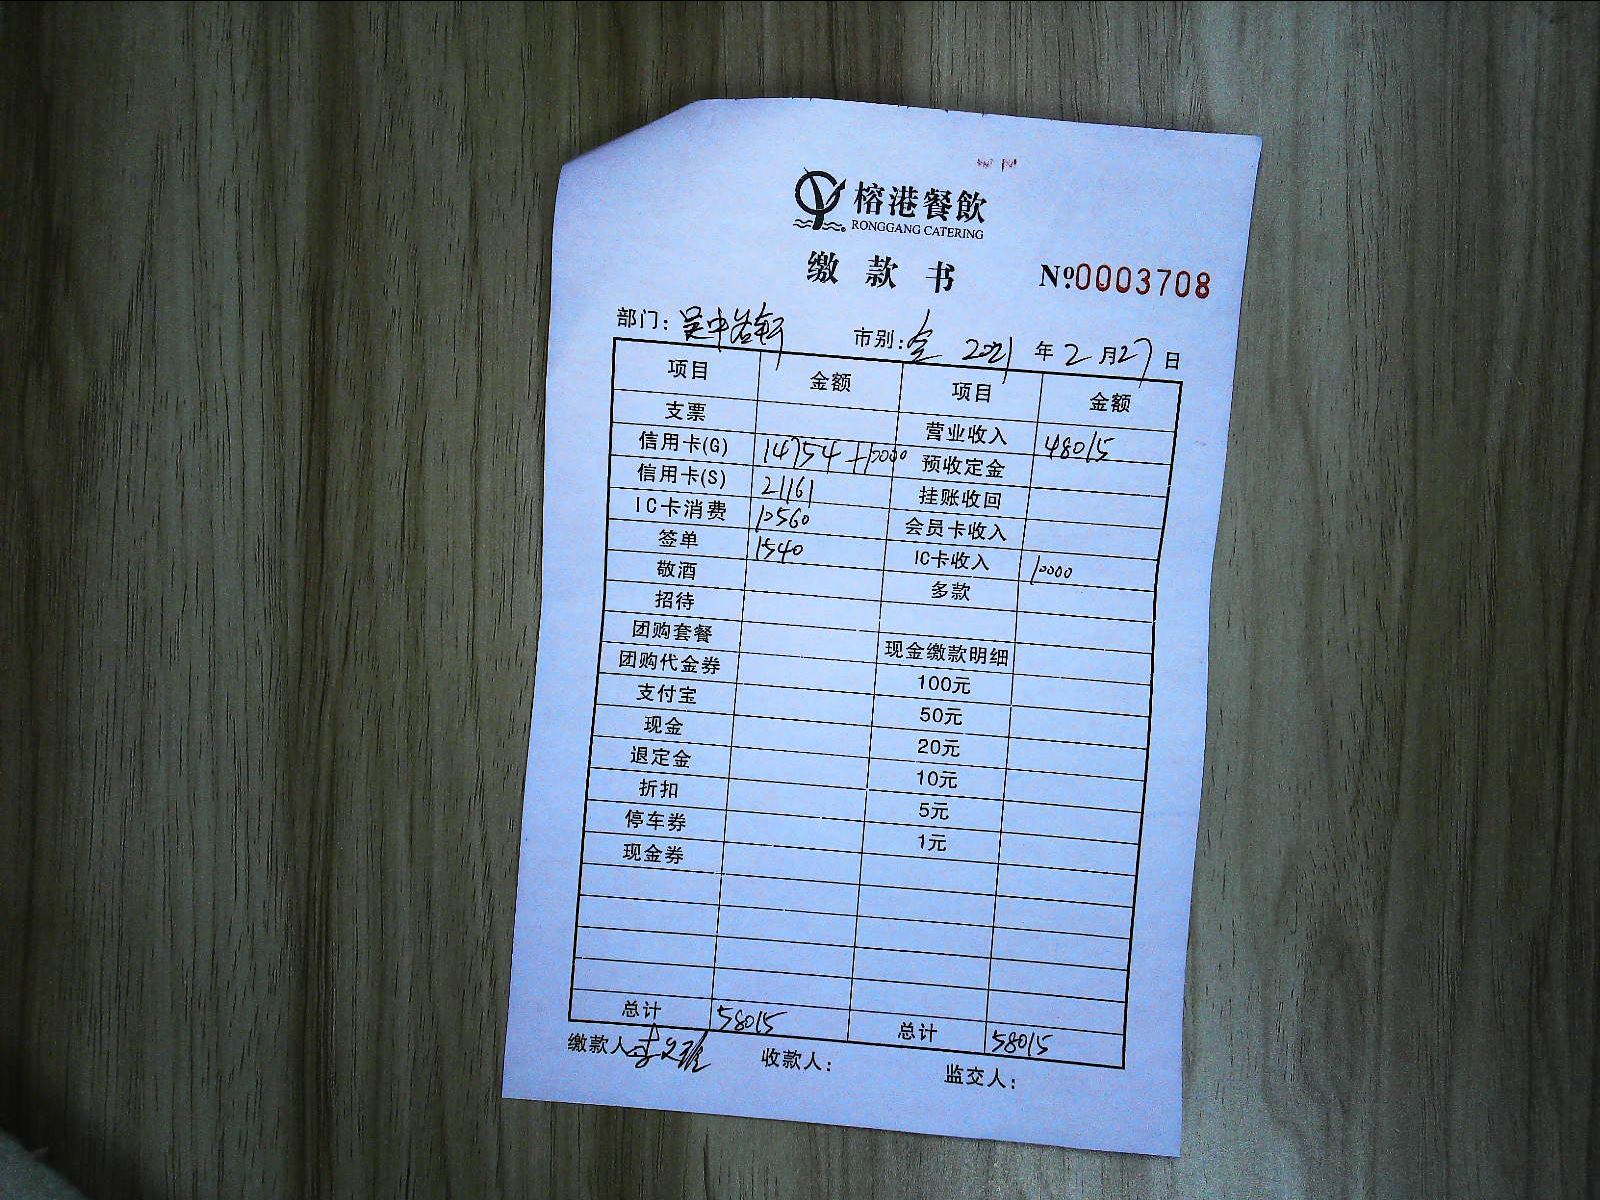 榕港餐飲
RONGGANG CATERING
缴款书 №0003708
部门: 吴中 市别: 全 2021 年 2 月 27 日
项目 金额 项目 金额
支票 营业收入 48015
信用卡(G) 14754+10000 预收定金
信用卡(S) 21161 挂账收回
IC卡消费 10560 会员卡收入
签单 1540 IC卡收入 10000
敬酒 多款
招待
团购套餐 现金缴款明细
团购代金券 100元
支付宝 50元
现金 20元
退定金 10元
折扣 5元
停车券 1元
现金券
总计 58015 总计 58015
缴款人 李 收款人: 监交人: